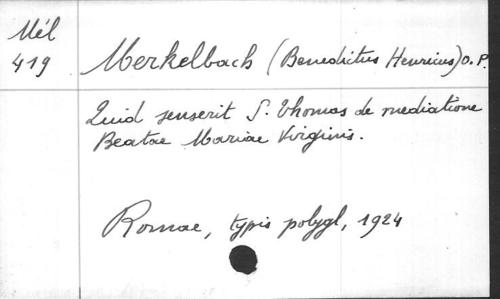 Mél
419
Merkelbach (Benedictus Henricus) O.P.
Quid senserit S. Thomas de mediatione
Beatae Mariae Virginis.
Romae, typis polygl, 1924